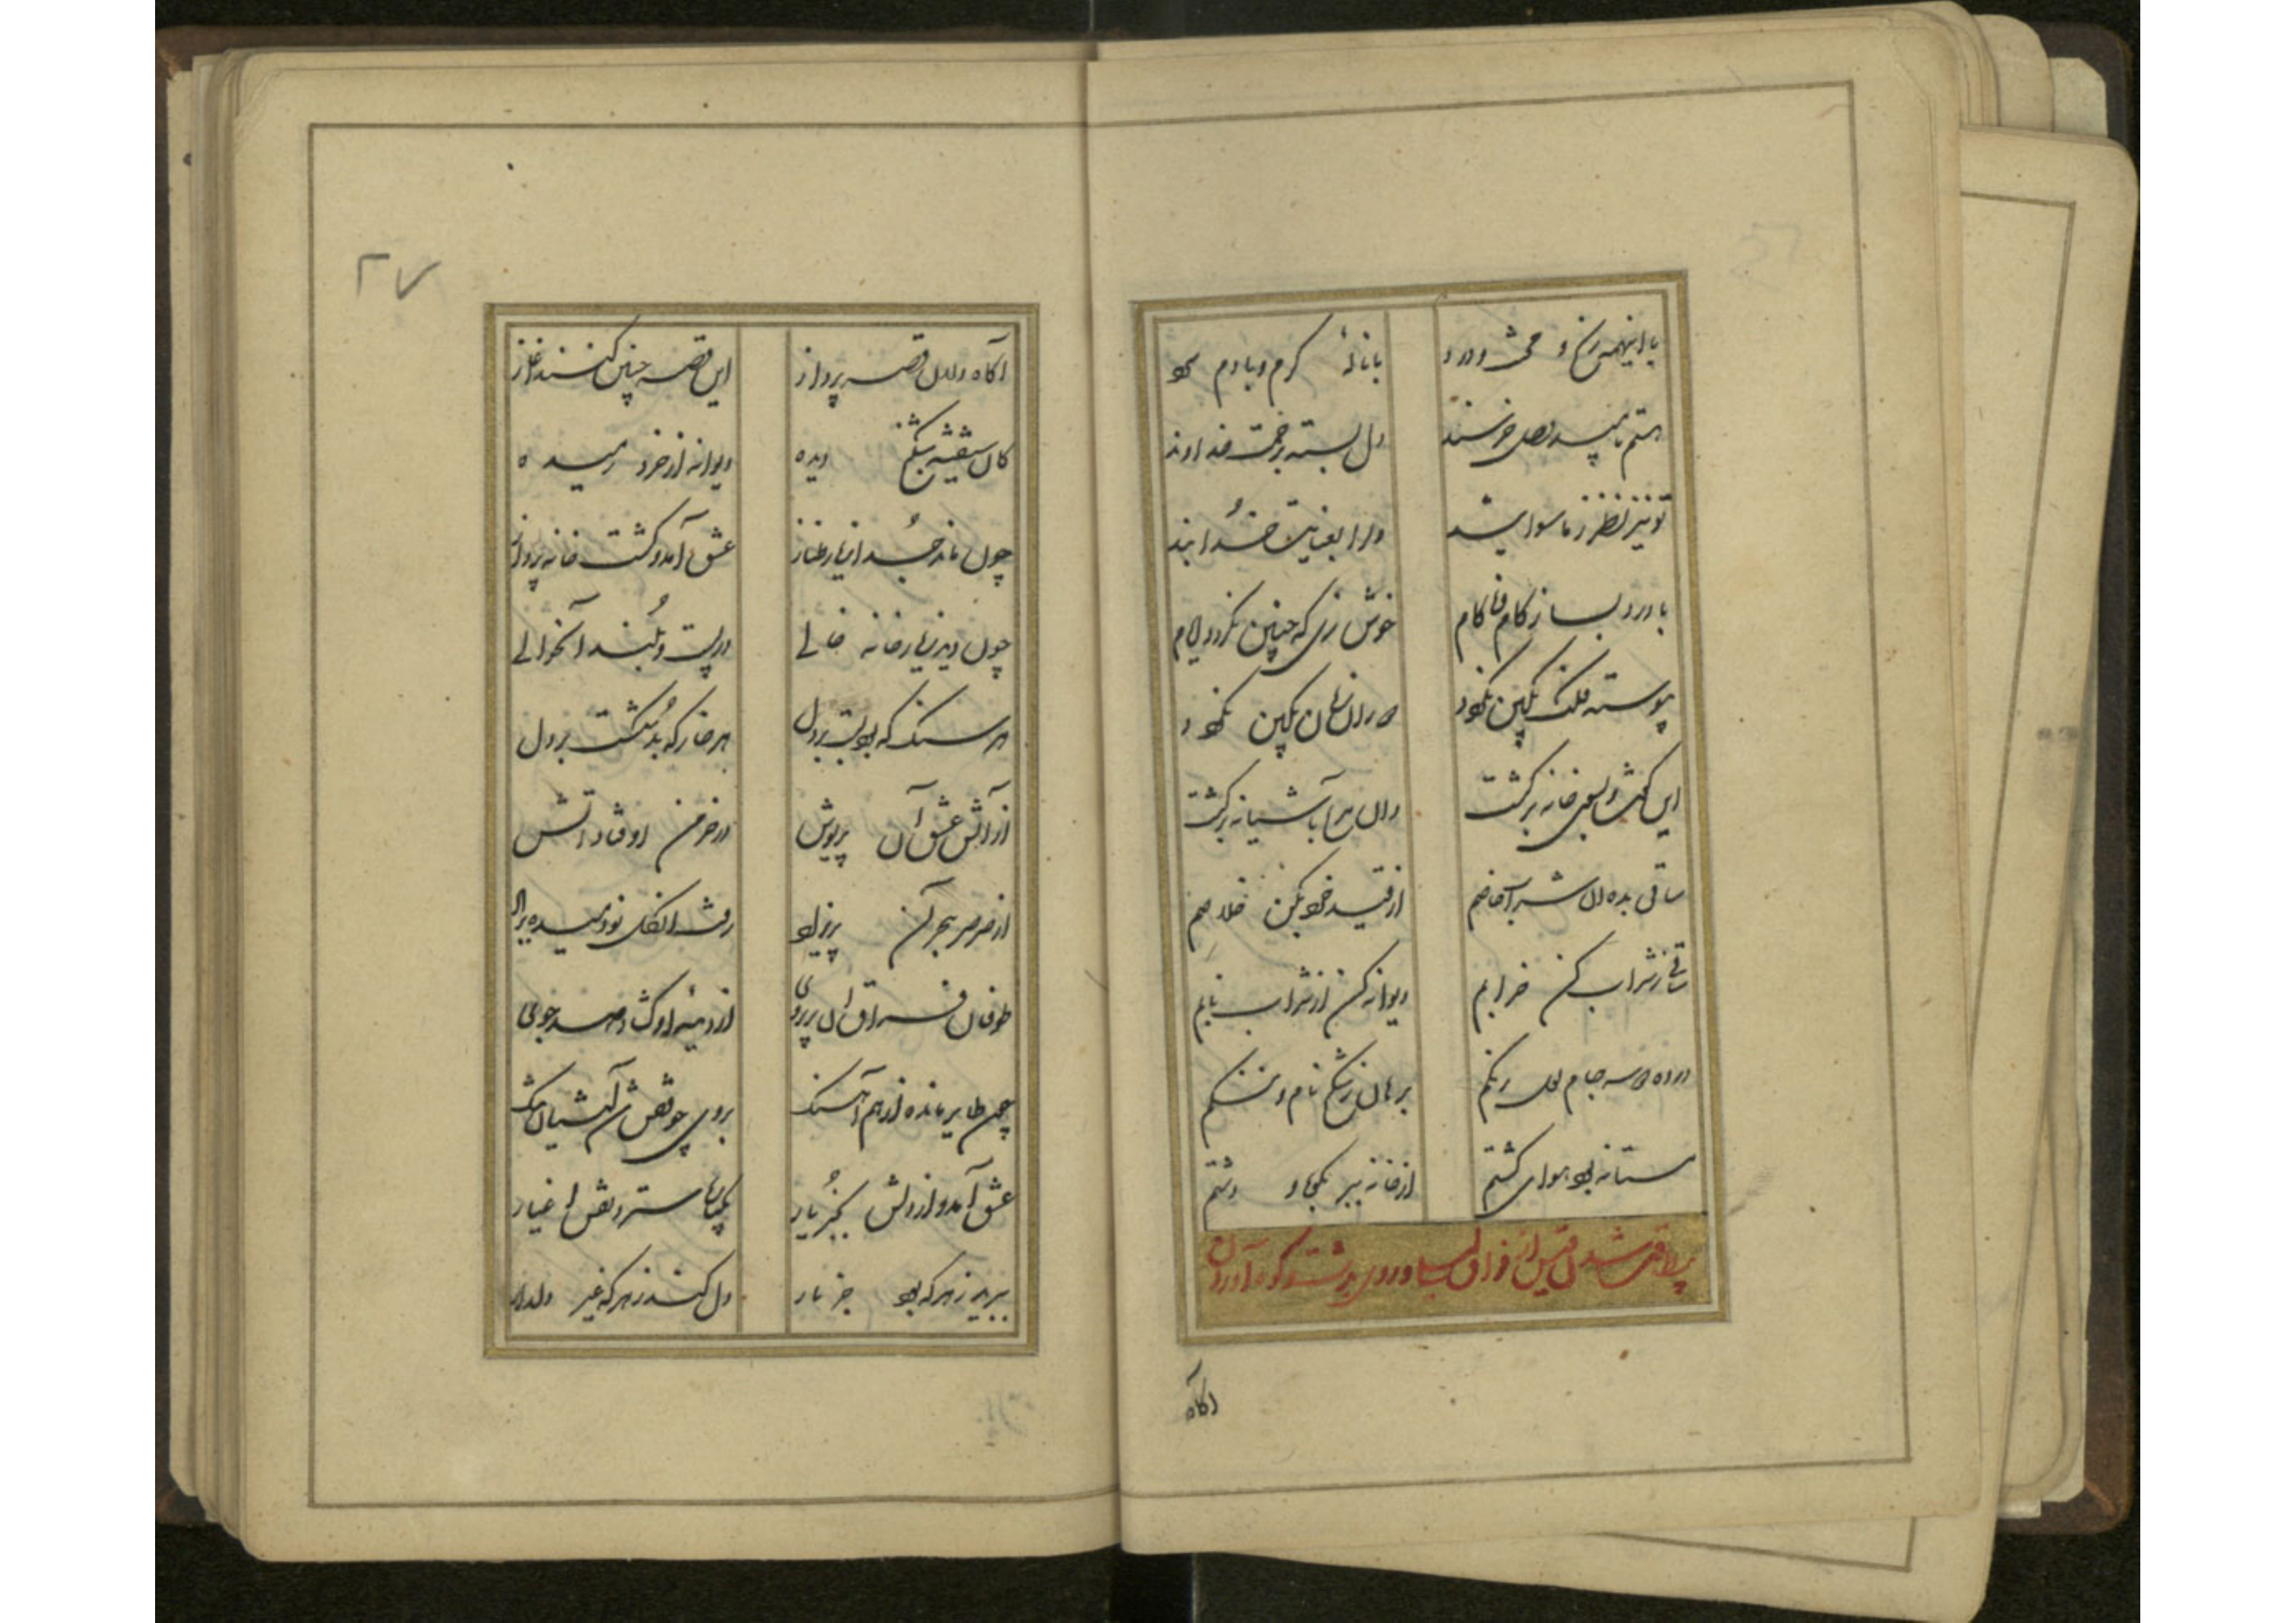 با اینهمه رنج و محنت و درد با نالهٔ گرم و با دم سرد
هستم بامید وصل خرسند دل بسته برحمت خداوند
تو نیز نظر ز ماسوا بند دل را بعنایت خدا بند
با درد بساز کام و ناکام خوش زی که چنین نگردد ایام
پیوسته فلک بکین نگردد دوران بکین نگردد
این گفت و بسوی خانه برگشت وان مرغ بآشیانه برگشت
ساقی بده آن شراب خاصم از قید خودی بکن خلاصم
ساقی ز شراب کن خرابم دیوانه کن از شراب نابم
در ده دو سه جام لعل رنگم برهان ز شکنج نام و ننگم
مستانه بود هوای گشتم از خانه ببر بکوه و دشتم
بیطاقت شدن قیس از فراق لیلی و روی بدشت و کوه آوردن
آگاه
۲۷
آگاه دلان قصه پرداز این قصه چنین کنند آغاز
کان شیفتهٔ ستم دیده دیوانه از خرد رمیده
چون ماند جدا ز یار طناز عشق آمد و گشت خانه پرداز
چون دید ز یار خانه خالی در پست و بلند آن حوالی
هر سنگ که بود بست بر دل هر خار که بد شکست بر دل
از آتش عشق آن پریوش در خرمن او فتاد آتش
از صرصر هجر آن پریزاد رفت آن گل نودمیده بر باد
طوفان فراق آن پریروی از دیدهٔ او گشاد صد جوی
چون طایر مانده از هم آهنگ بر وی چو قفس شد آشیان تنگ
عشق آمد و از دلش بجز یار یکباره سترد نقش اغیار
ببرید ز هر که بود جز یار دل کند ز هر که غیر دلدار